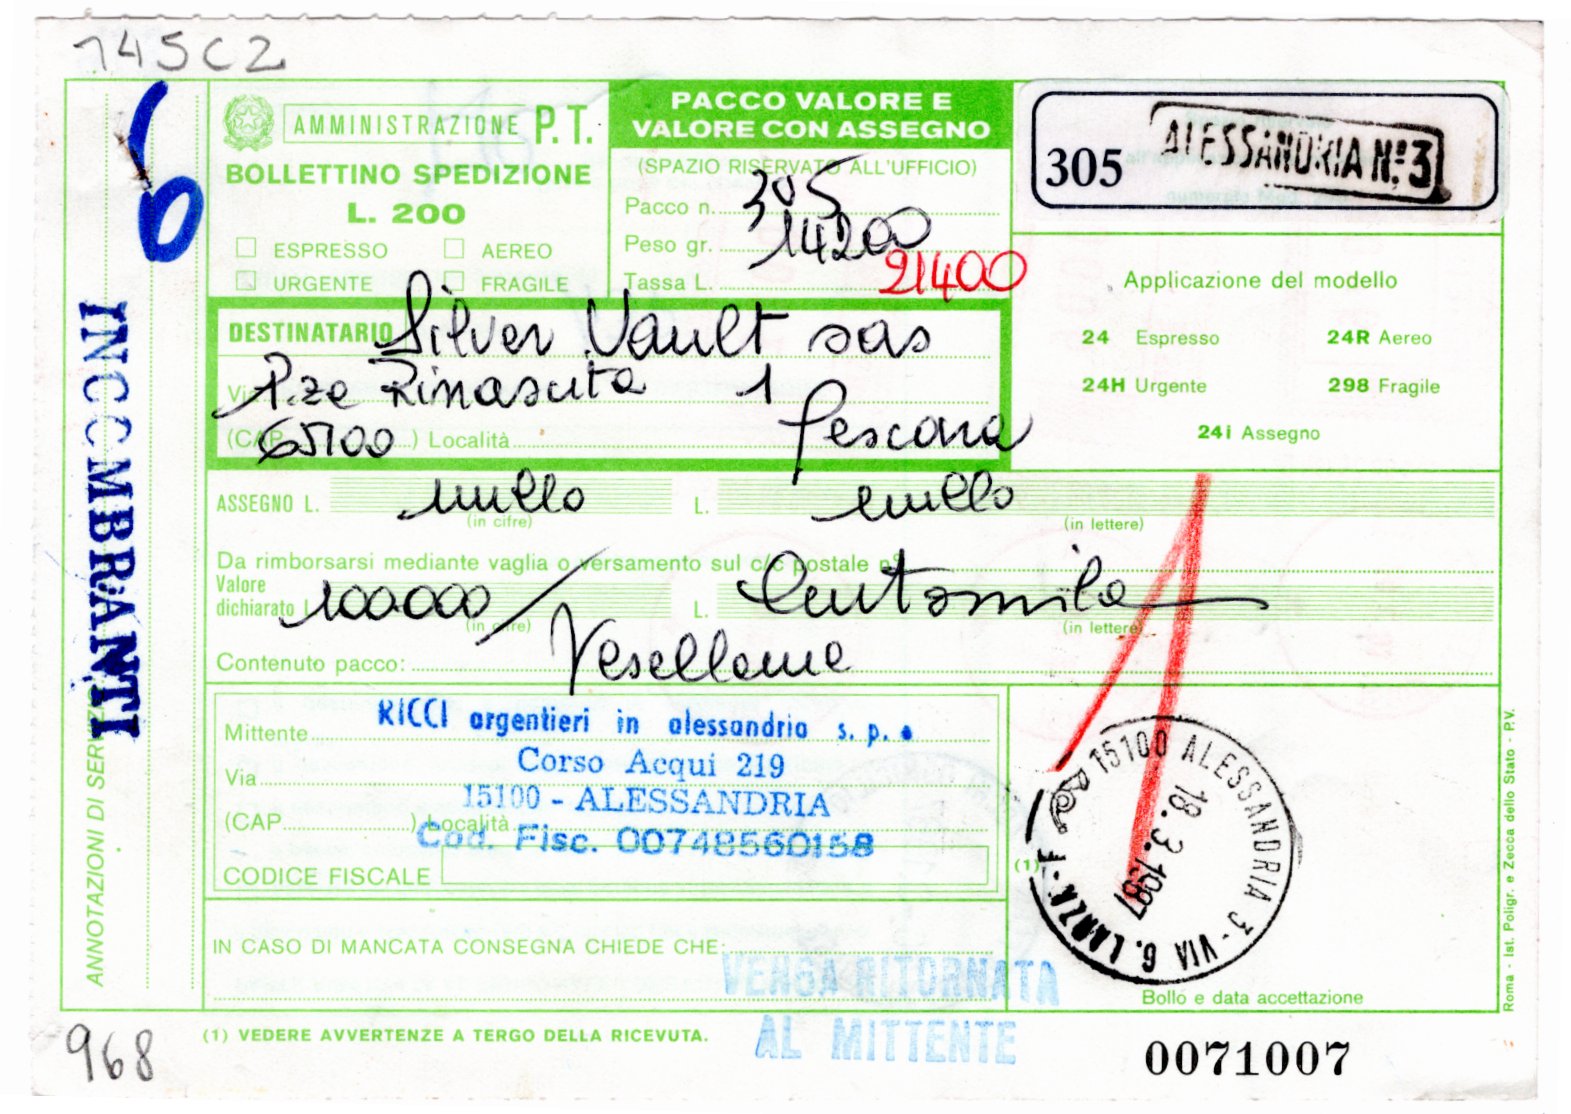 145C2
AMMINISTRAZIONE P.T.
BOLLETTINO SPEDIZIONE
L. 200
ESPRESSO AEREO
URGENTE FRAGILE
PACCO VALORE E
VALORE CON ASSEGNO
(SPAZIO RISERVATO ALL'UFFICIO)
Pacco n. 305
Peso gr. 14200
Tassa L. 21400
305 ALESSANDRIA N.º 3
Applicazione del modello
24 Espresso 24R Aereo
24H Urgente 298 Fragile
24i Assegno
6
INCOMBRANTI
ANNOTAZIONI DI SERVIZIO
DESTINATARIO Silver Vault sas
Via P.za Rinascita 1
(CAP 65100) Località Pescara
ASSEGNO L. nullo L. nullo
(in cifre) (in lettere)
Da rimborsarsi mediante vaglia o versamento sul c/c postale n°
Valore
dichiarato L. 100.000/ L. Centomila
(in cifre) (in lettere)
Contenuto pacco: Vasellame
1
Mittente RICCI argentieri in alessandria s.p.a
Via Corso Acqui 219
15100 - ALESSANDRIA
(CAP ) Località
Cod. Fisc. 00748560158
CODICE FISCALE
15100 ALESSANDRIA 3 - VIA G. LANZA - F
18.3.1987
(1)
IN CASO DI MANCATA CONSEGNA CHIEDE CHE:
VENGA RITORNATA
AL MITTENTE
Bollo e data accettazione
Roma - Ist. Poligr. e Zecca dello Stato - P.V.
(1) VEDERE AVVERTENZE A TERGO DELLA RICEVUTA.
968
0071007